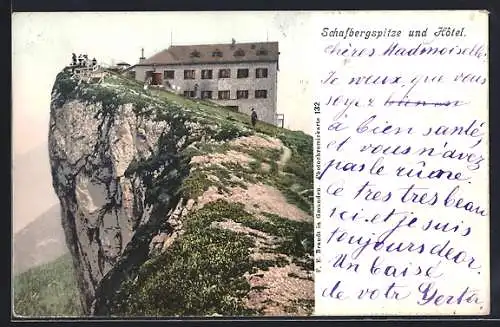 Schafbergspitze und Hôtel.
chères Mademoiselle.
Je veux, que vous
soyez bien en
à bien santé,
et vous n'avez
pas le rûme.
Ce tres tres beau
ici et je suis
toujours dear.
Un baisé
de votr Gerta
F. E. Brandt in Gmunden. Photochromiekarte 132